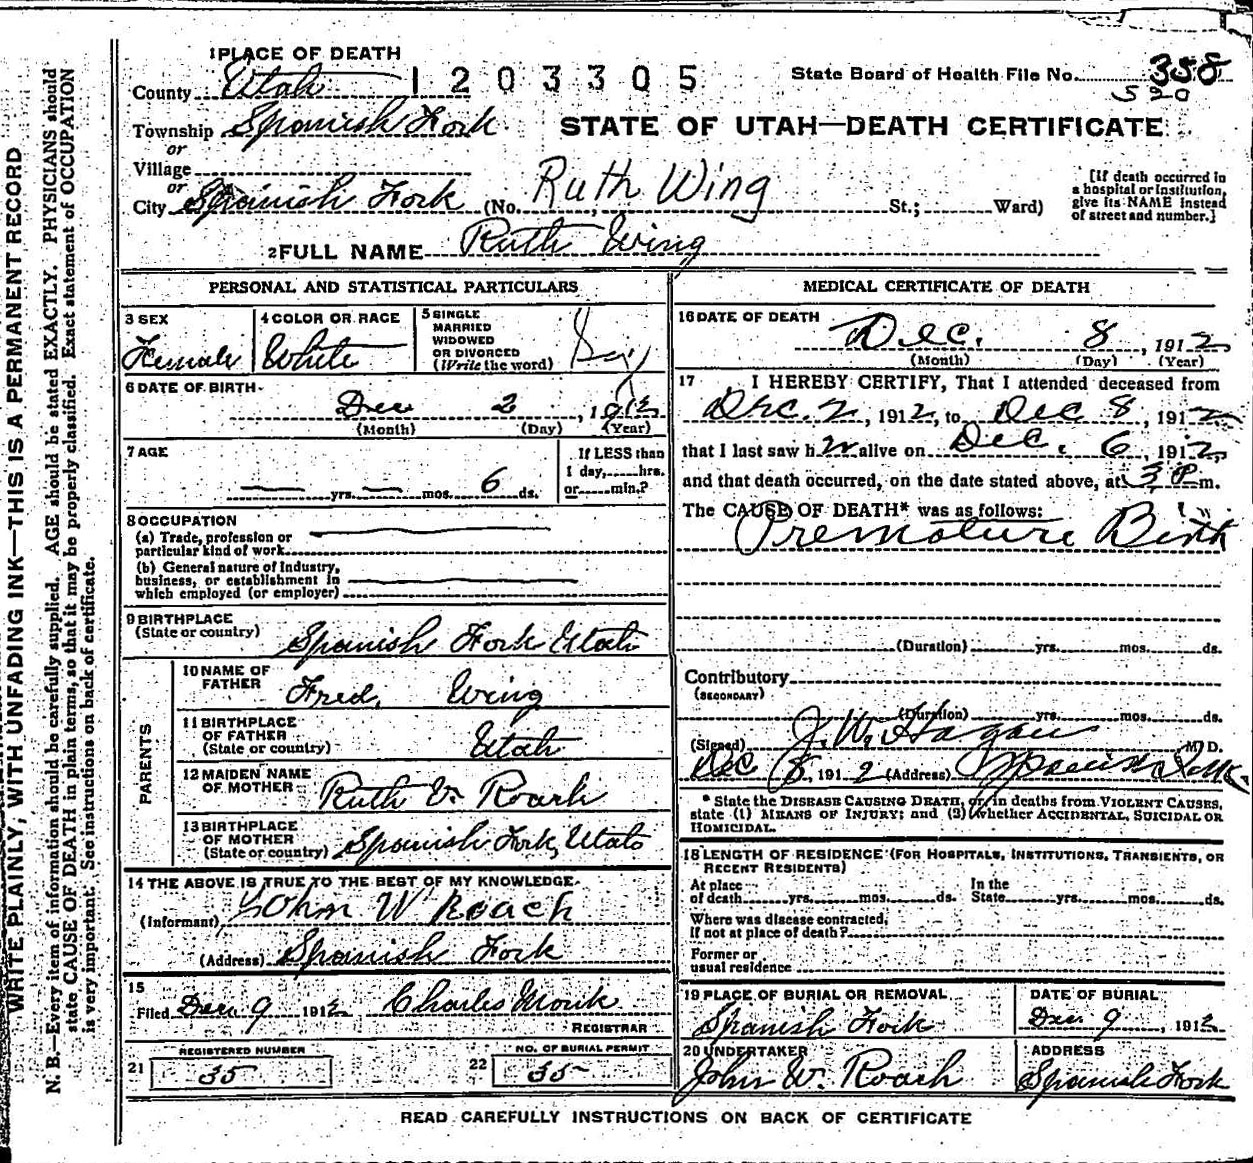 1 PLACE OF DEATH
County Utah
1203305
State Board of Health File No. 358
Township Spanish Fork
STATE OF UTAH—DEATH CERTIFICATE
or
Village
or
City Spanish Fork (No. St.; Ward)
Ruth Wing
[If death occurred in
a hospital or institution,
give its NAME instead
of street and number.]
2 FULL NAME Ruth Wing
WRITE PLAINLY, WITH UNFADING INK—THIS IS A PERMANENT RECORD
N. B.—Every item of information should be carefully supplied. AGE should be stated EXACTLY. PHYSICIANS should
state CAUSE OF DEATH in plain terms, so that it may be properly classified. Exact statement of OCCUPATION
is very important. See instructions on back of certificate.
PERSONAL AND STATISTICAL PARTICULARS
3 SEX
Female
4 COLOR OR RACE
White
5 SINGLE
MARRIED
WIDOWED
OR DIVORCED
(Write the word)
6 DATE OF BIRTH
Dec 2, 1912
(Month) (Day) (Year)
7 AGE
— yrs. — mos. 6 ds.
If LESS than
1 day, hrs.
or min.?
8 OCCUPATION
(a) Trade, profession or
particular kind of work
(b) General nature of Industry,
business, or establishment in
which employed (or employer)
9 BIRTHPLACE
(State or country)
Spanish Fork Utah
PARENTS
10 NAME OF
FATHER
Fred. Wing
11 BIRTHPLACE
OF FATHER
(State or country)
Utah
12 MAIDEN NAME
OF MOTHER
Ruth V. Roach
13 BIRTHPLACE
OF MOTHER
(State or country)
Spanish Fork, Utah
14 THE ABOVE IS TRUE TO THE BEST OF MY KNOWLEDGE
(Informant) John W Roach
(Address) Spanish Fork
15
Filed Dec 9 1912 Charles Monk
REGISTRAR
21
REGISTERED NUMBER
35
22
NO. OF BURIAL PERMIT
35
MEDICAL CERTIFICATE OF DEATH
16 DATE OF DEATH
Dec. 8, 1912
(Month) (Day) (Year)
17 I HEREBY CERTIFY, That I attended deceased from
Dec. 2, 1912, to Dec 8, 1912
that I last saw her alive on Dec. 6, 1912,
and that death occurred, on the date stated above, at 3 P m.
The CAUSE OF DEATH* was as follows:
Premature Birth
(Duration) yrs. mos. ds.
Contributory
(SECONDARY)
(Duration) yrs. mos. ds.
(Signed) J. W. Hagan M. D.
Dec 8, 1912 (Address) Spanish Fork
* State the DISEASE CAUSING DEATH, or, in deaths from VIOLENT CAUSES,
state (1) MEANS OF INJURY; and (2) whether ACCIDENTAL, SUICIDAL OR
HOMICIDAL.
18 LENGTH OF RESIDENCE (FOR HOSPITALS, INSTITUTIONS, TRANSIENTS, OR
RECENT RESIDENTS)
At place
of death yrs. mos. ds.
In the
State yrs. mos. ds.
Where was disease contracted,
If not at place of death?
Former or
usual residence
19 PLACE OF BURIAL OR REMOVAL
Spanish Fork
DATE OF BURIAL
Dec 9, 1912
20 UNDERTAKER
John W. Roach
ADDRESS
Spanish Fork
READ CAREFULLY INSTRUCTIONS ON BACK OF CERTIFICATE